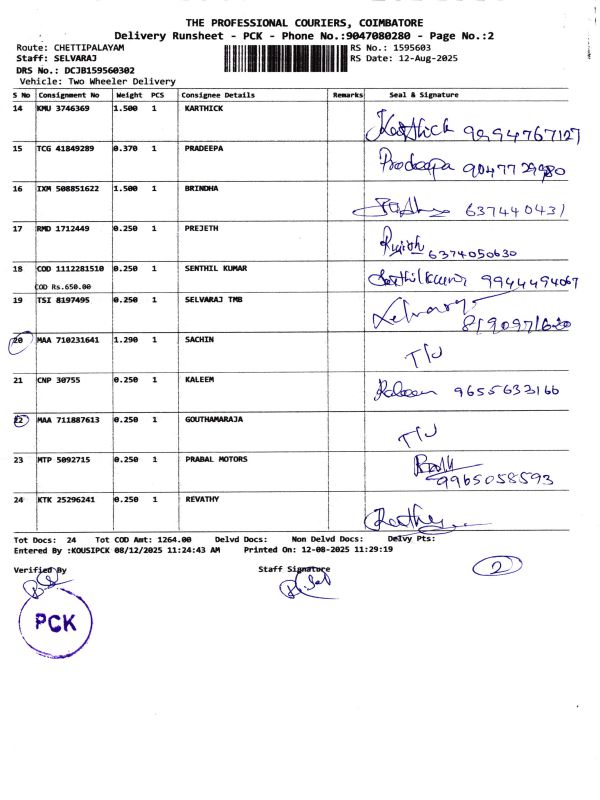 THE PROFESSIONAL COURIERS, COIMBATORE
Delivery Runsheet - PCK - Phone No.:9047080280 - Page No.:2
Route: CHETTIPALAYAM RS No.: 1595603
Staff: SELVARAJ RS Date: 12-Aug-2025
DRS No.: DCJB159560302
Vehicle: Two Wheeler Delivery
S No Consignment No Weight PCS Consignee Details Remarks Seal & Signature
14 KMU 3746369 1.500 1 KARTHICK
Karthick 9994767127
15 TCG 41849289 0.370 1 PRADEEPA
Pradeepa 9047729980
16 IXM 508851622 1.500 1 BRINDHA
637440431
17 RMD 1712449 0.250 1 PREJETH
6374050630
18 COD 1112281510 0.250 1 SENTHIL KUMAR
COD Rs.650.00
Senthil Kumar 9944494067
19 TSI 8197495 0.250 1 SELVARAJ TMB
Selvaraj
8190971620
20 MAA 710231641 1.290 1 SACHIN
21 CNP 30755 0.250 1 KALEEM
Kaleem 9655633166
22 MAA 711887613 0.250 1 GOUTHAMARAJA
23 MTP 5092715 0.250 1 PRABAL MOTORS
9965058593
24 KTK 25296241 0.250 1 REVATHY
Tot Docs: 24 Tot COD Amt: 1264.00 Delvd Docs: Non Delvd Docs: Delvy Pts:
Entered By :KOUSIPCK 08/12/2025 11:24:43 AM Printed On: 12-08-2025 11:29:19
Verified By Staff Signature
2
PCK